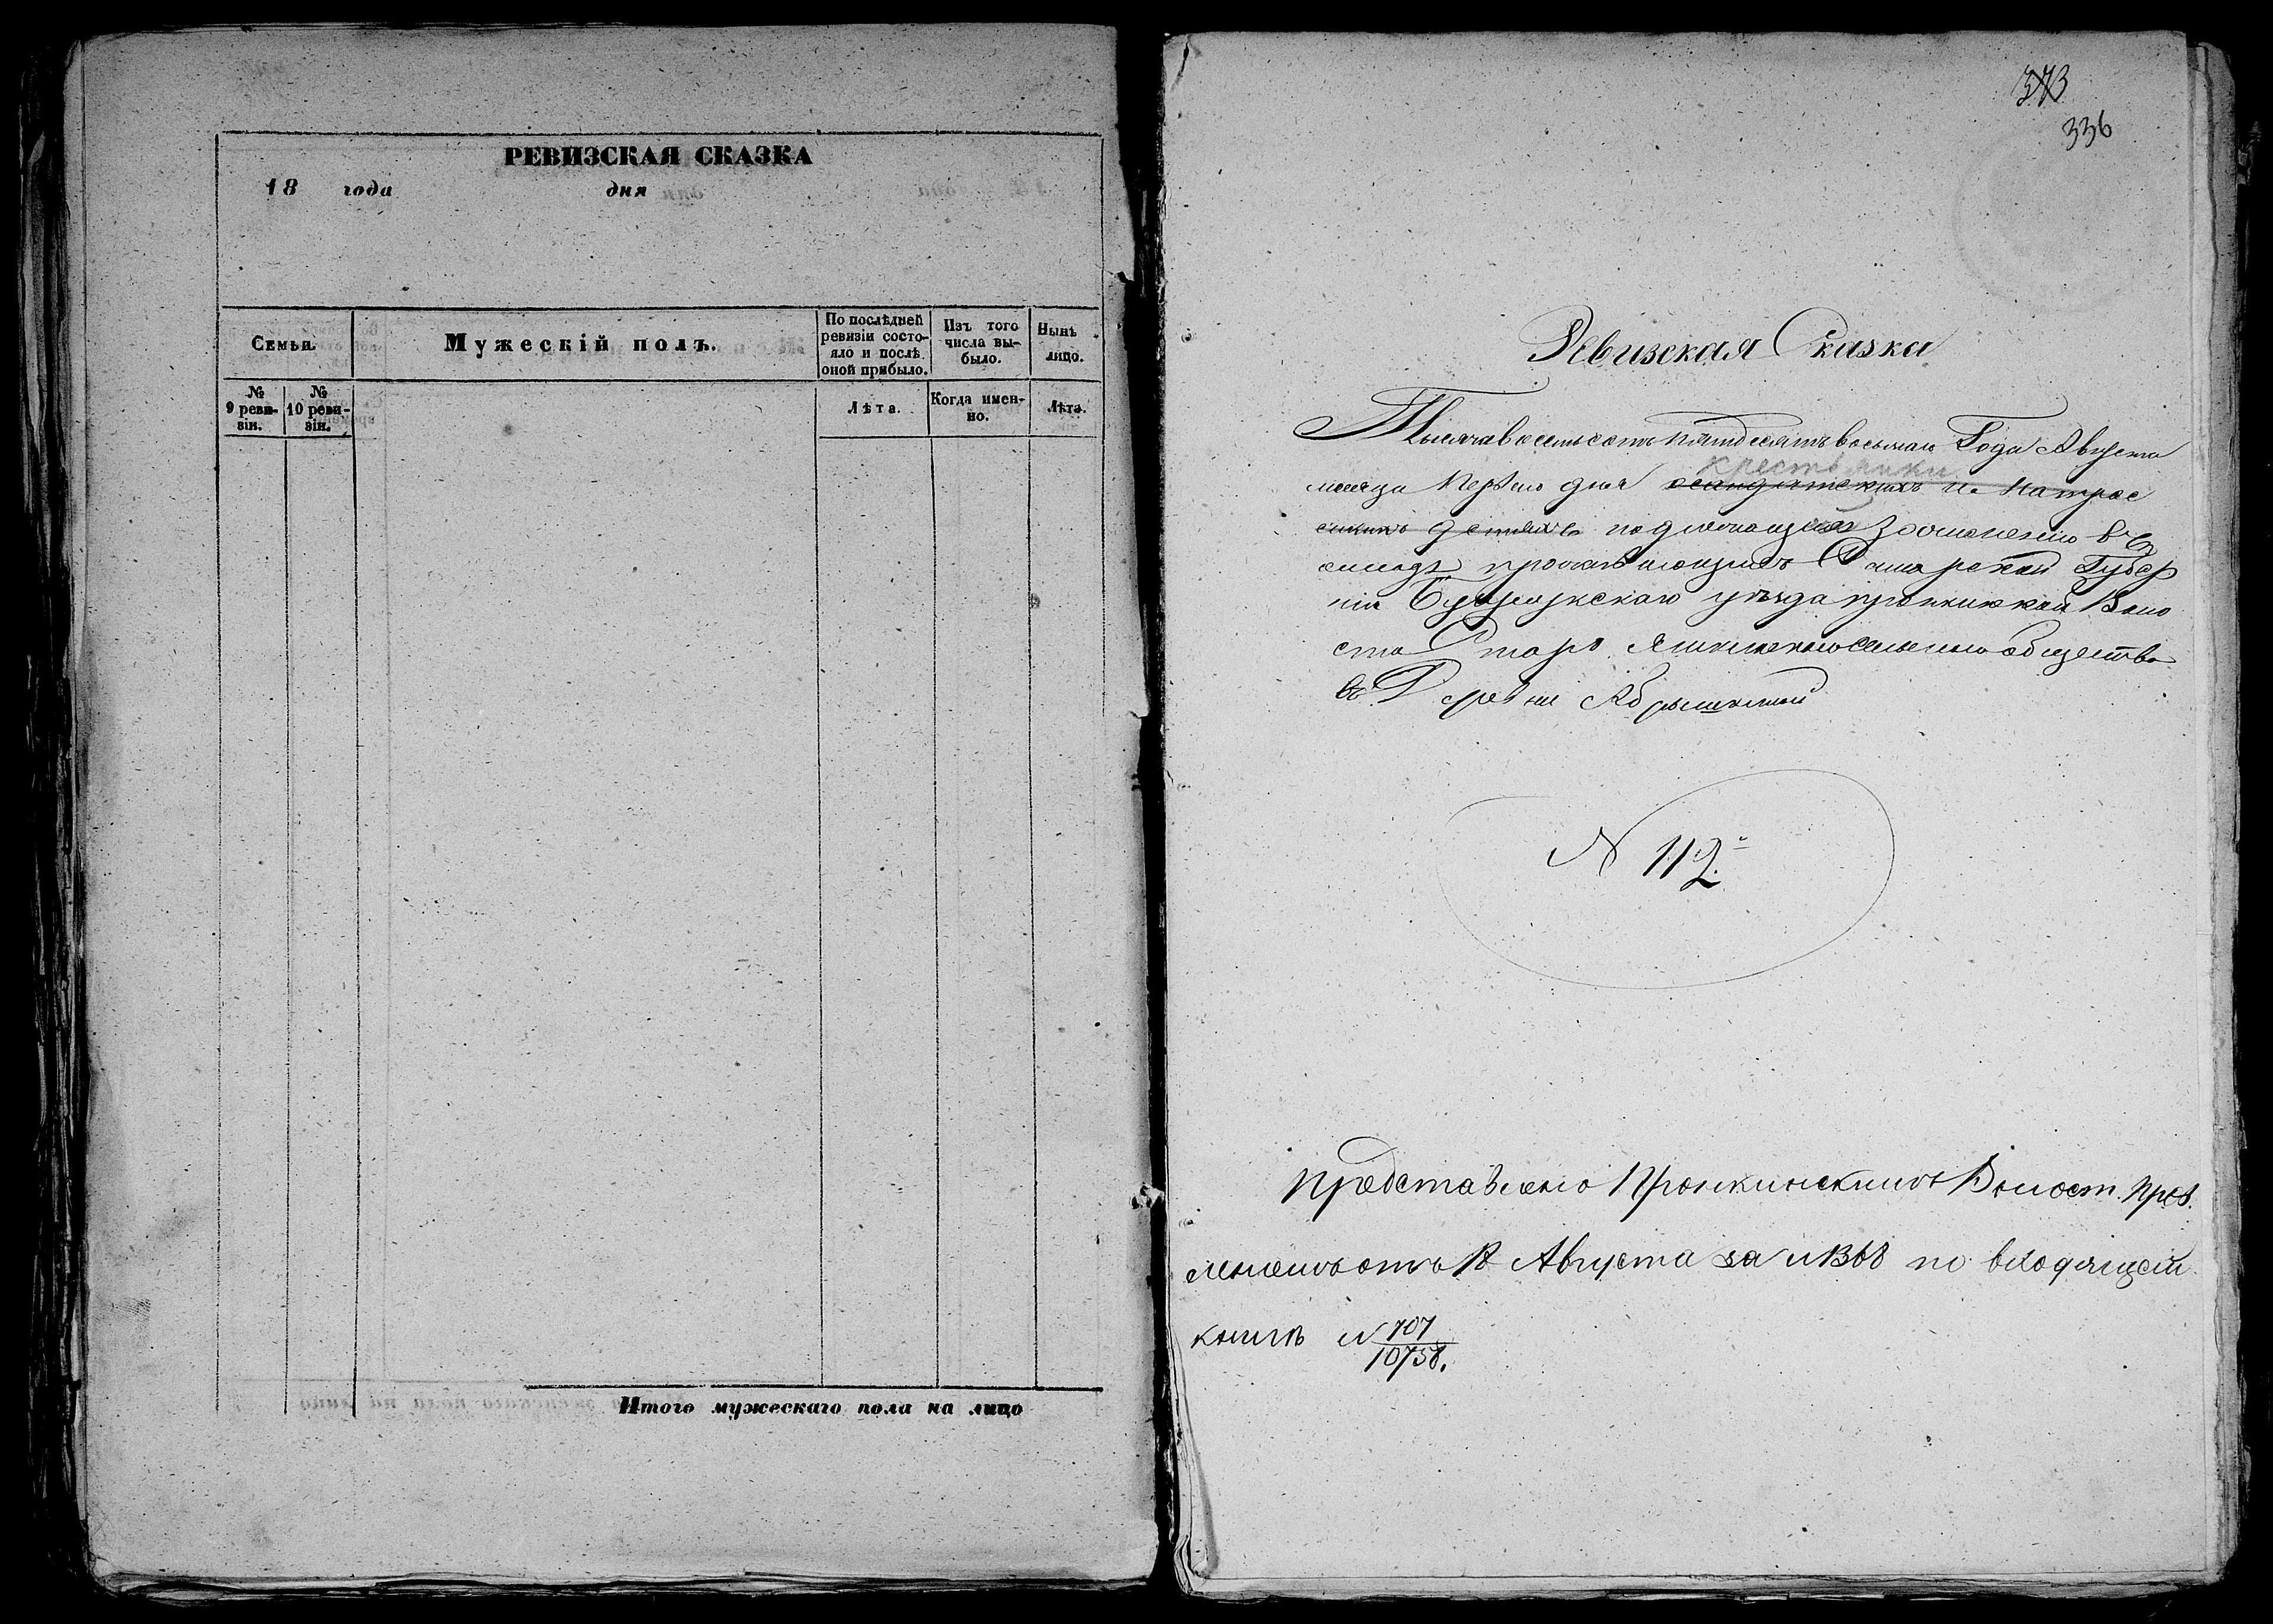 РЕВИЗСКАЯ СКАЗКА
18 года дня
Семьи.
Мужескій полъ.
По послѣдней ревизіи состояло и послѣ оной прибыло.
Изъ того числа выбыло.
Нынѣ лицо.
№ 9 ревизіи.
№ 10 ревизіи.
Лѣта.
Когда именно.
Лѣта.
Итого мужескаго пола на лицо
373
336
Ревизская Сказка
Тысяча восемьсотъ пятдесятъ восьмаго Года Августа
крестьянки
месяца Первого дня солдатскихъ и матрос
скихъ детяхъ подлежащей Зочисленію в
окладъ Самарской Губер
ніи Бузулукскаго уѣзда пронкинской Воло
сти Старо сельскаго общества
въ Деревни
N 112
Представлено Пронкинскимъ Волост. прав.
леніемъ отъ 18 Августа за N 1368 по входящей
книгѣ N 707
10758.